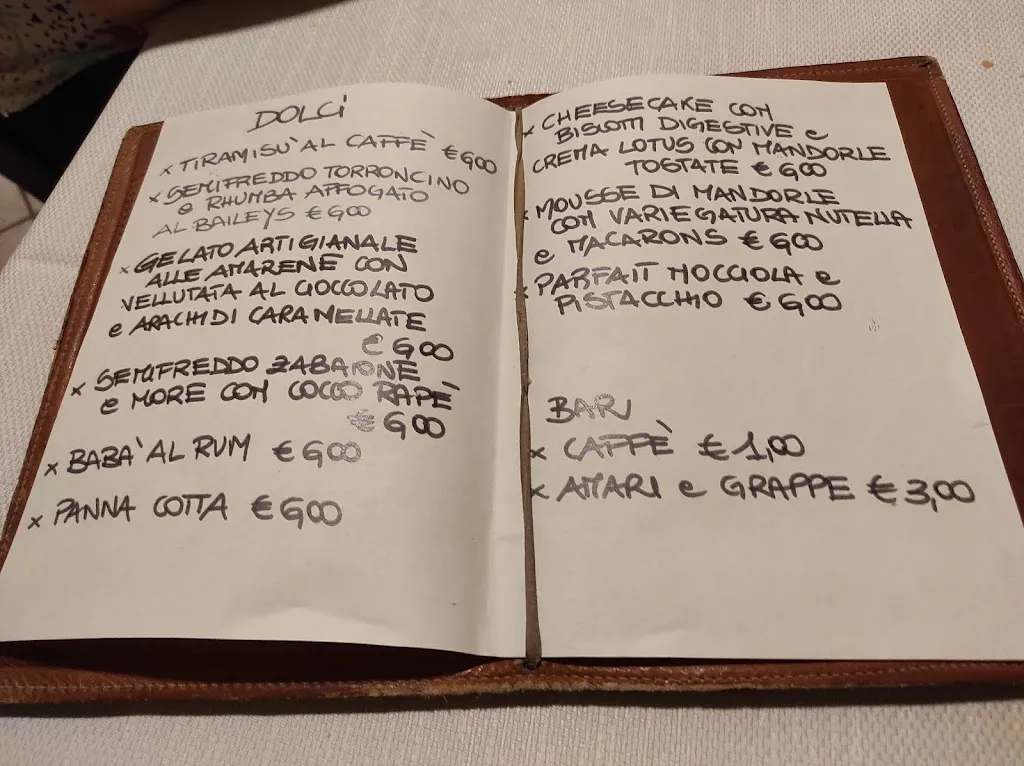 DOLCi
x TIRAMISU' AL CAFFÈ € 6,00
x SEMIFREDDO TORRONCINO
e RHUMBA AFFOGATO
AL BAILEYS € 6,00
x GELATO ARTIGIANALE
ALLE AMARENE CON
VELLUTATA AL CIOCCOLATO
e ARACHIDI CARAMELLATE
€ 6,00
x SEMIFREDDO ZABAIONE
e MORE CON COCCO RAPÈ
€ 6,00
x BABA' AL RUM € 6,00
x PANNA COTTA € 6,00
x CHEESECAKE CON
BISCOTTI DIGESTIVE e
CREMA LOTUS CON MANDORLE
TOSTATE € 6,00
x MOUSSE DI MANDORLE
CON VARIEGATURA NUTELLA
e MACARONS € 6,00
x PARFAIT NOCCIOLA e
PISTACCHIO € 6,00
BAR
x CAFFÈ € 1,00
x AMARI e GRAPPE € 3,00